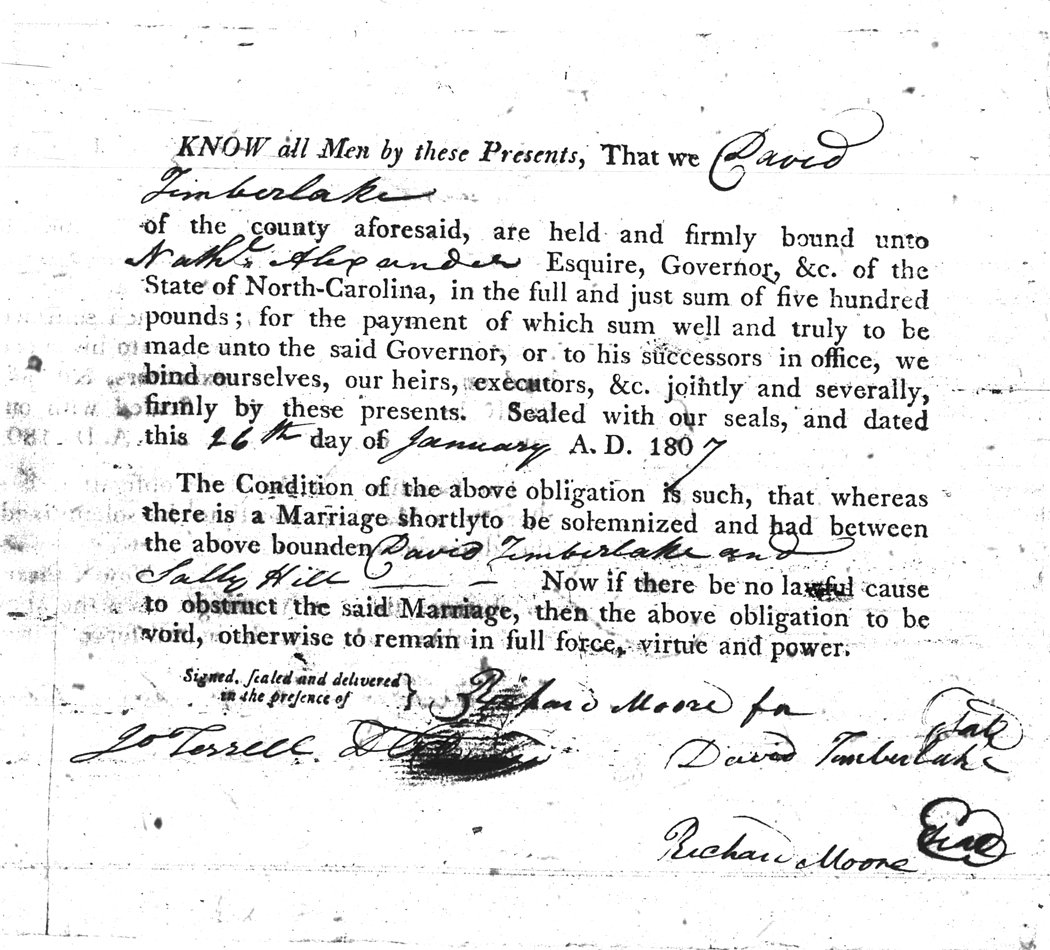 KNOW all Men by these Presents, That we David
Timberlake
of the county aforesaid, are held and firmly bound unto
Nathl. Alexander Esquire, Governor, &c. of the
State of North-Carolina, in the full and just sum of five hundred
pounds; for the payment of which sum well and truly to be
made unto the said Governor, or to his successors in office, we
bind ourselves, our heirs, executors, &c. jointly and severally,
firmly by these presents. Sealed with our seals, and dated
this 26th day of January A. D. 1807
The Condition of the above obligation is such, that whereas
there is a Marriage shortlyto be solemnized and had between
the above bounden David Timberlake and
Sally Hill — - Now if there be no lawful cause
to obstruct the said Marriage, then the above obligation to be
void, otherwise to remain in full force, virtue and power.
Signed, sealed and delivered
in the presence of } Richard Moore for
Jo Terrell David Timberlake Seal
Richard Moore Seal